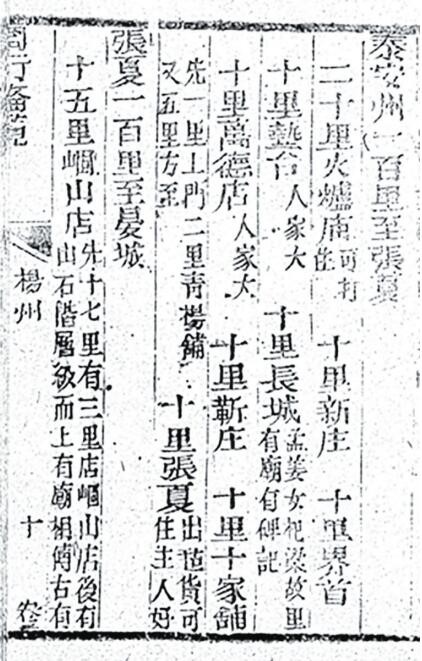 泰安州一百里至張夏
二十里火爐庙可打住 十里新庄 十里界首
十里墊台人家大 十里長城孟姜女杞梁故里有廟有碑記
十里萬德店人家大 十里靳庄 十里十家舖
先一里上門二里青楊舖又五里方至 十里張夏出毡貨可住主人好
張夏一百里至晏城
十五里崓山店先十七里有三里店崓山店後有山石階層級而上有廟相傳古有
周行備覽 楊州 十 卷三